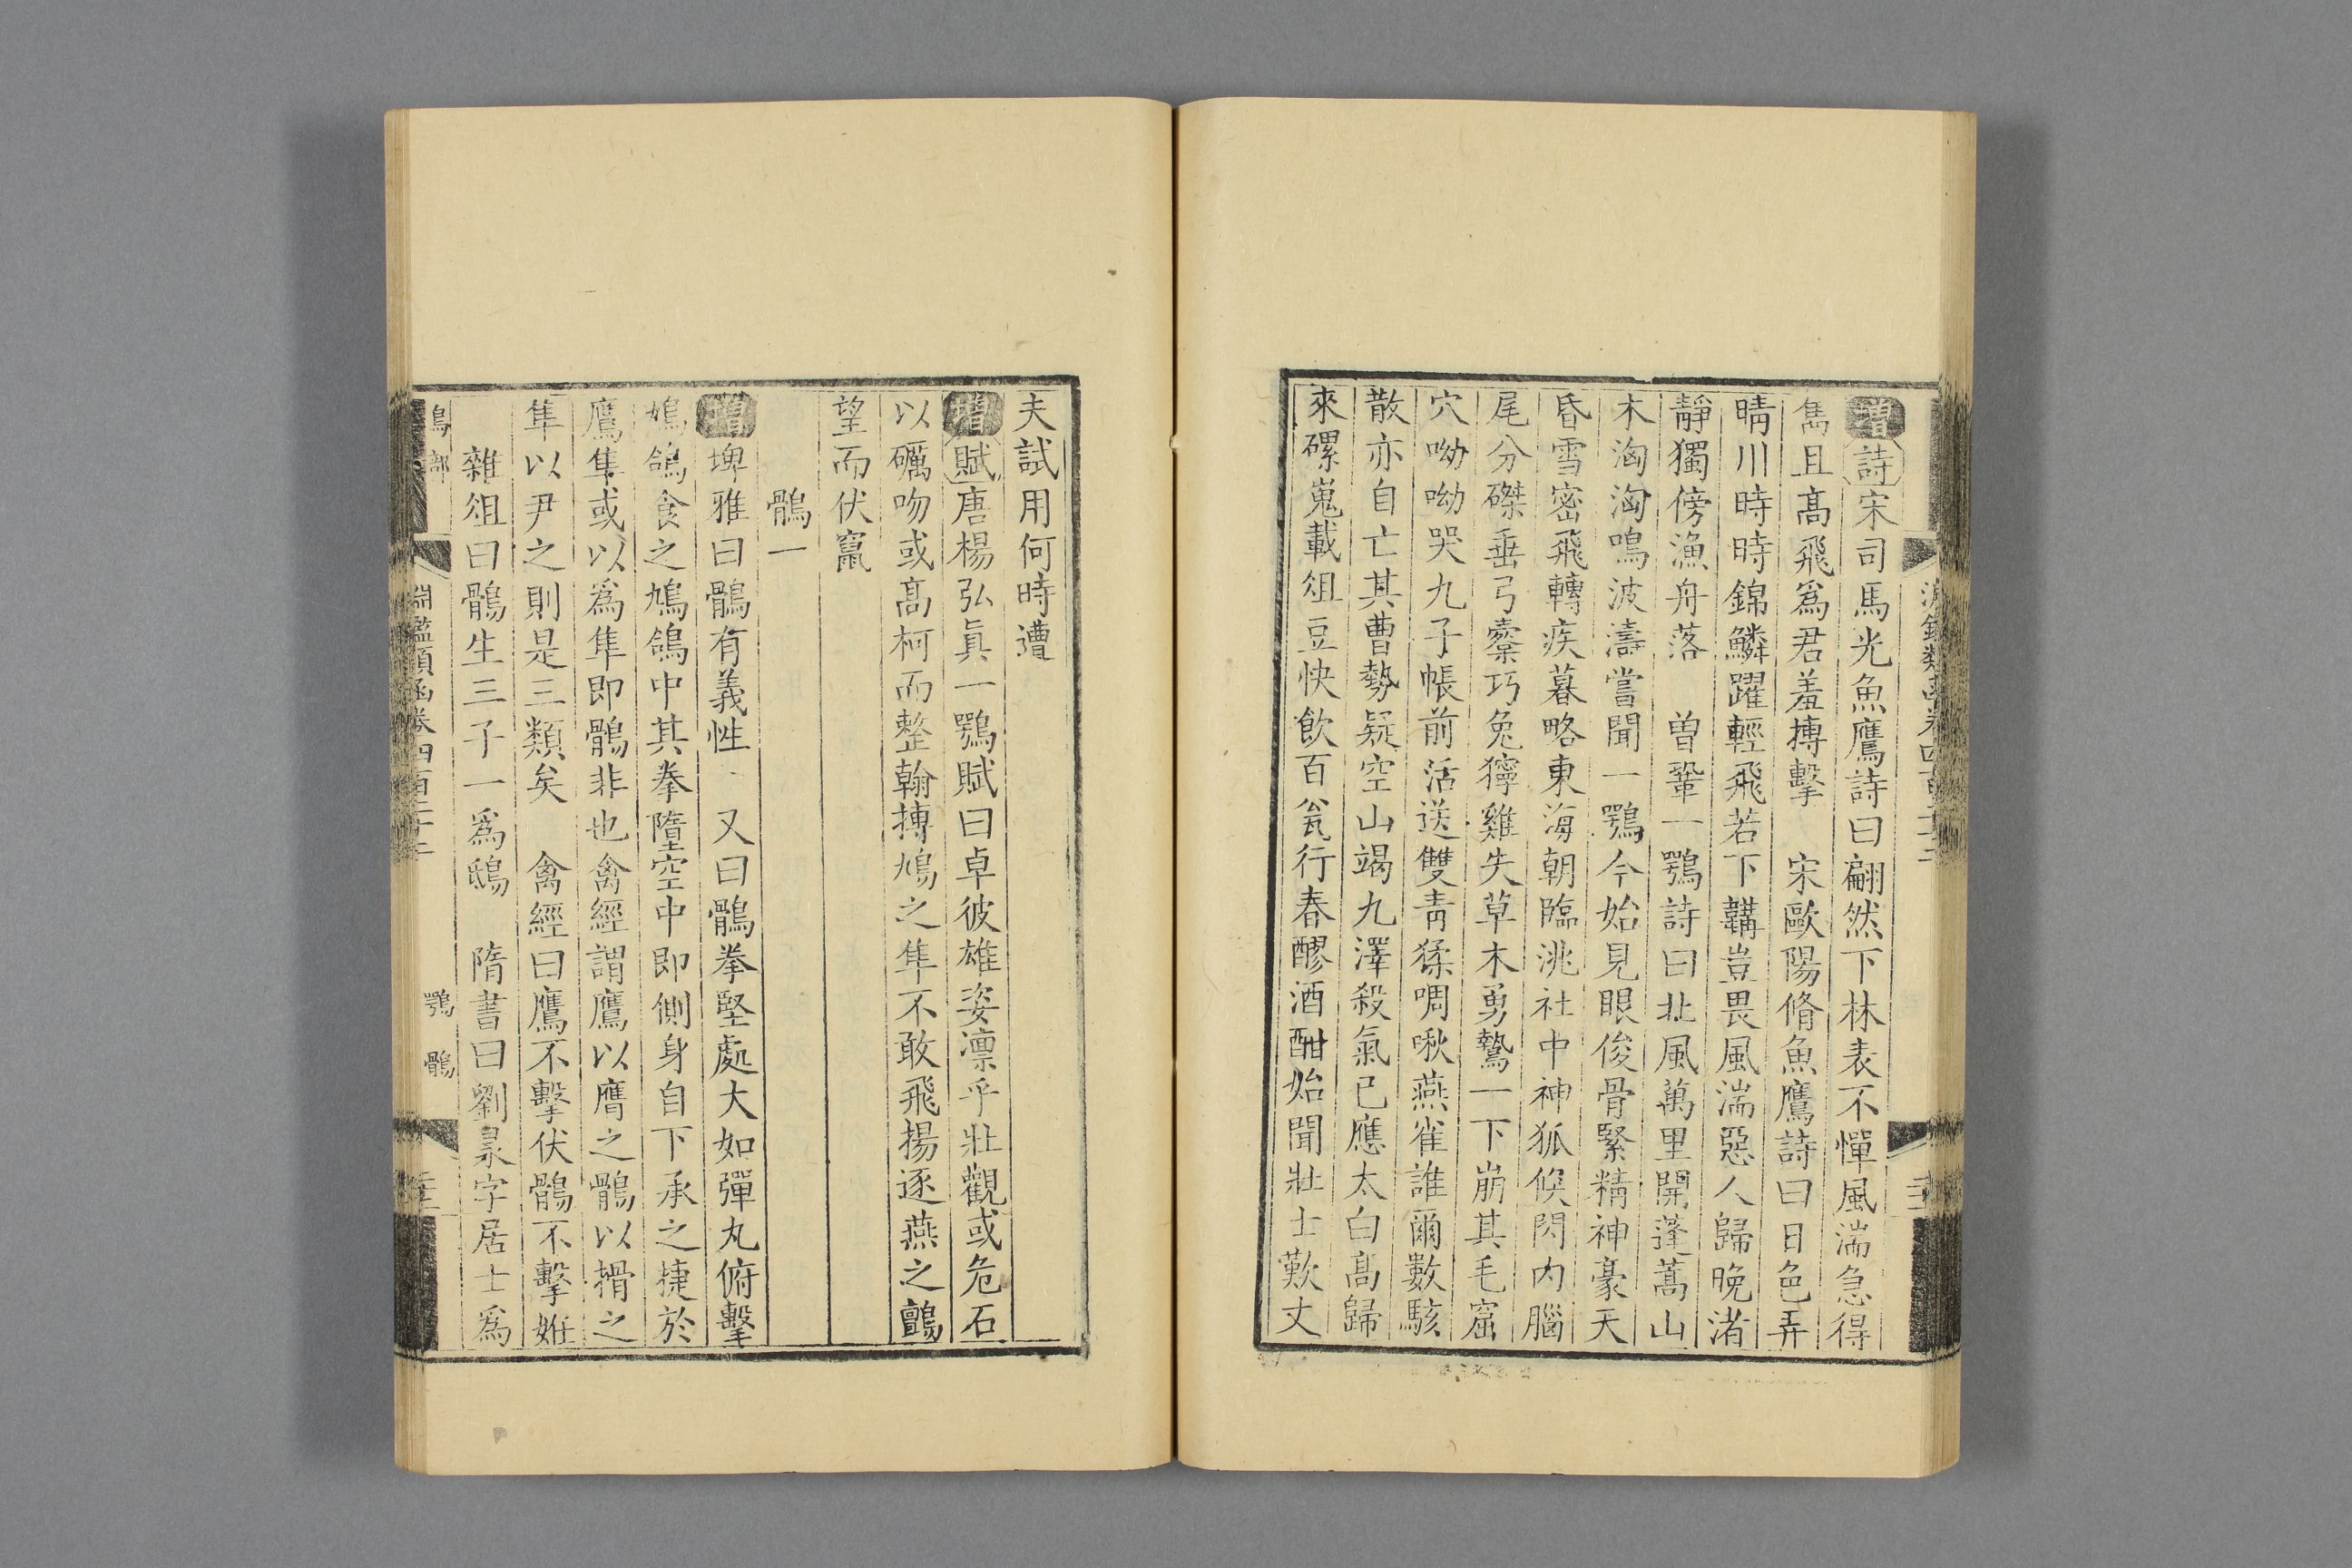 增詩宋司馬光魚鷹詩曰翩然下林表不憚風湍急得
雋且高飛爲君羞搏擊　宋歐陽脩魚鷹詩曰日色弄
晴川時時錦鱗躍輕飛若下韝豈畏風湍惡人歸晚渚
靜獨傍漁舟落　曽鞏一鶚詩曰北風萬里開蓬蒿山
木洶洶鳴波濤嘗聞一鶚今始見眼俊骨緊精神豪天
昏雪密飛轉疾暮略東海朝臨洮社中神狐倏閃内腦
尾分磔垂弓櫜巧兔獰雞失草木勇鷙一下崩其毛窟
穴呦呦哭九子帳前活送雙青猱啁啾燕雀誰爾數駭
散亦自亡其曹勢疑空山竭九澤殺氣已應太白高歸
來磥嵬載俎豆快飲百瓮行春醪酒酣始聞壯士歎丈
夫試用何時遭
增賦唐楊弘眞一鶚賦曰卓彼雄姿凛乎壯觀或危石
以礪吻或高柯而整翰摶鳩之隼不敢飛揚逐燕之鸇
望而伏竄
鶻一
增埤雅曰鶻有義性　又曰鶻拳堅處大如彈丸俯擊
鳩鴿食之鳩鴿中其拳墮空中即側身自下承之捷於
鷹隼或以爲隼即鶻非也禽經謂鷹以膺之鶻以搰之
隼以尹之則是三類矣　禽經曰鷹不擊伏鶻不擊妊
雜俎曰鶻生三子一爲鴟　隋書曰劉㬎字居士爲
鳥部
淵鑑類函卷四百二十二
鶚　鶻